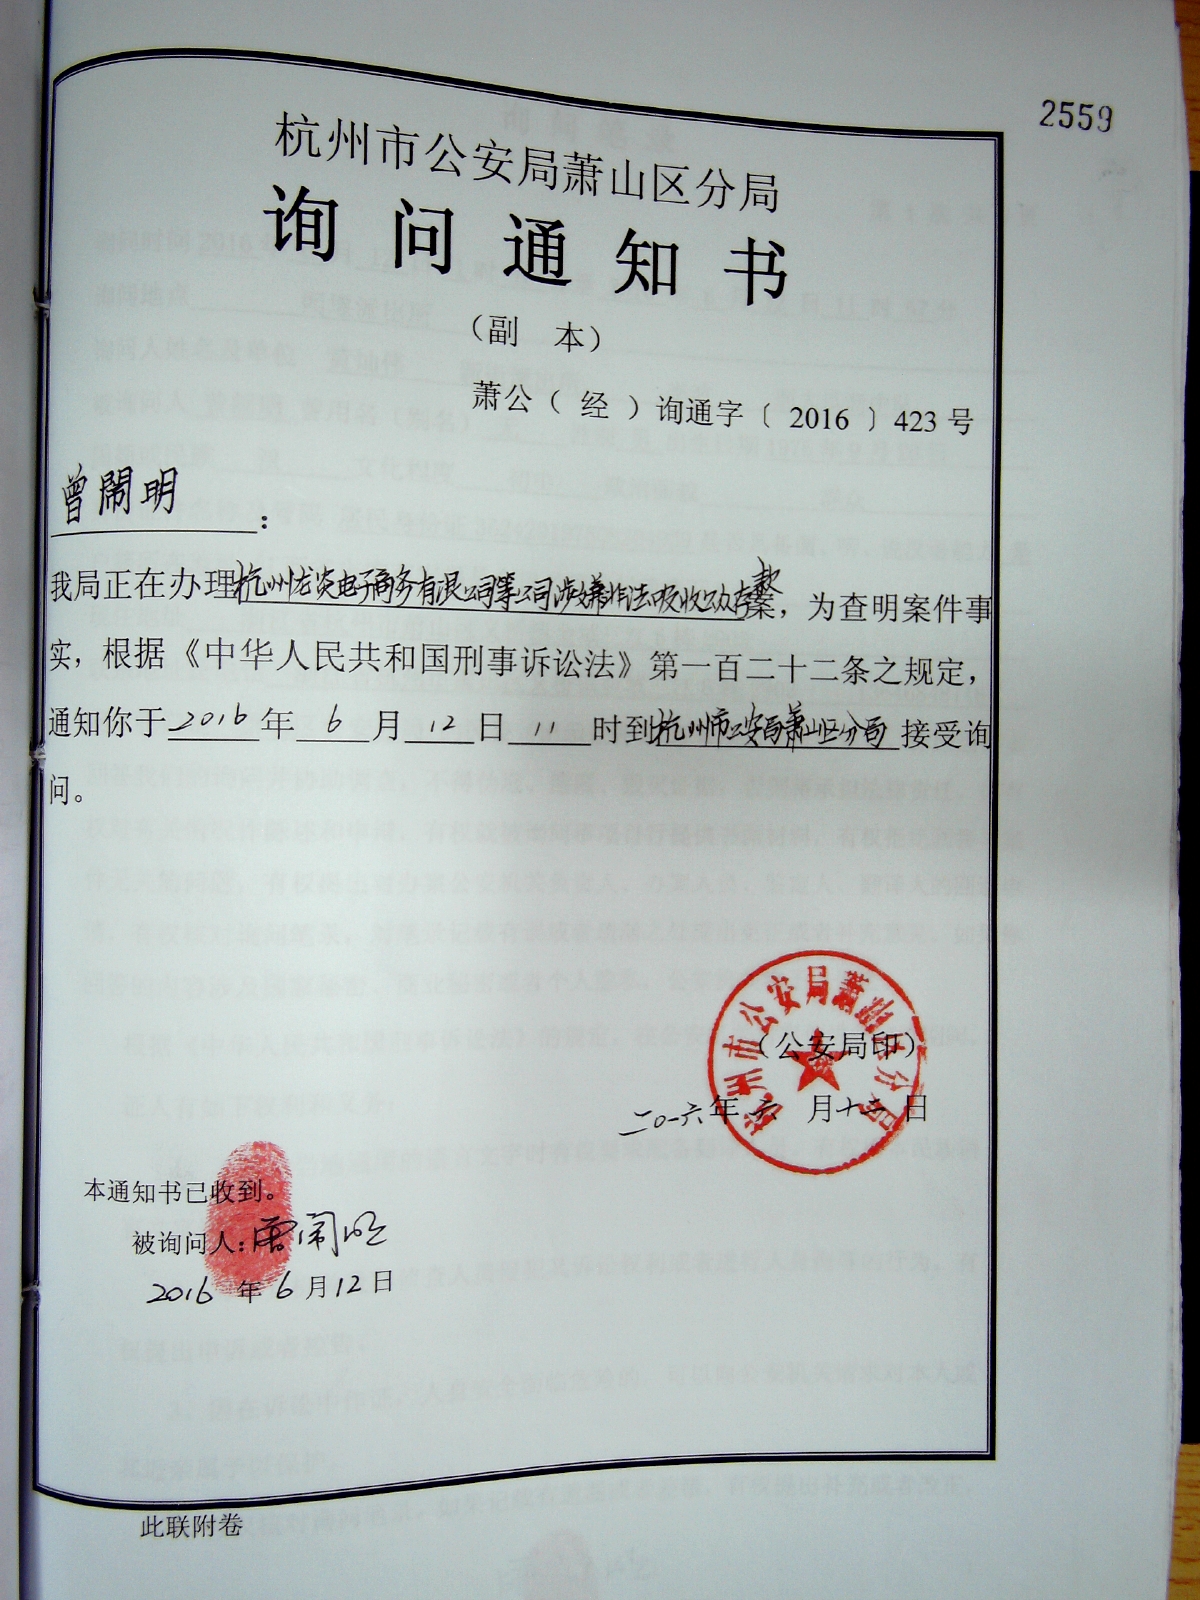 2559
杭州市公安局萧山区分局
询问通知书
（副 本）
萧公（ 经 ）询通字〔 2016 〕423 号
曾鬧明：
我局正在办理杭州龙炎电子商务有限公司等公司涉嫌非法吸收公众存款案，为查明案件事
实，根据《中华人民共和国刑事诉讼法》第一百二十二条之规定，
通知你于2016年 6 月 12 日 11 时到杭州市公安局萧山区分局接受询
问。
杭州市公安局萧山区分局
（公安局印）
二〇一六年六月十二日
本通知书已收到。
被询问人：曾闹明
2016 年 6 月 12 日
此联附卷